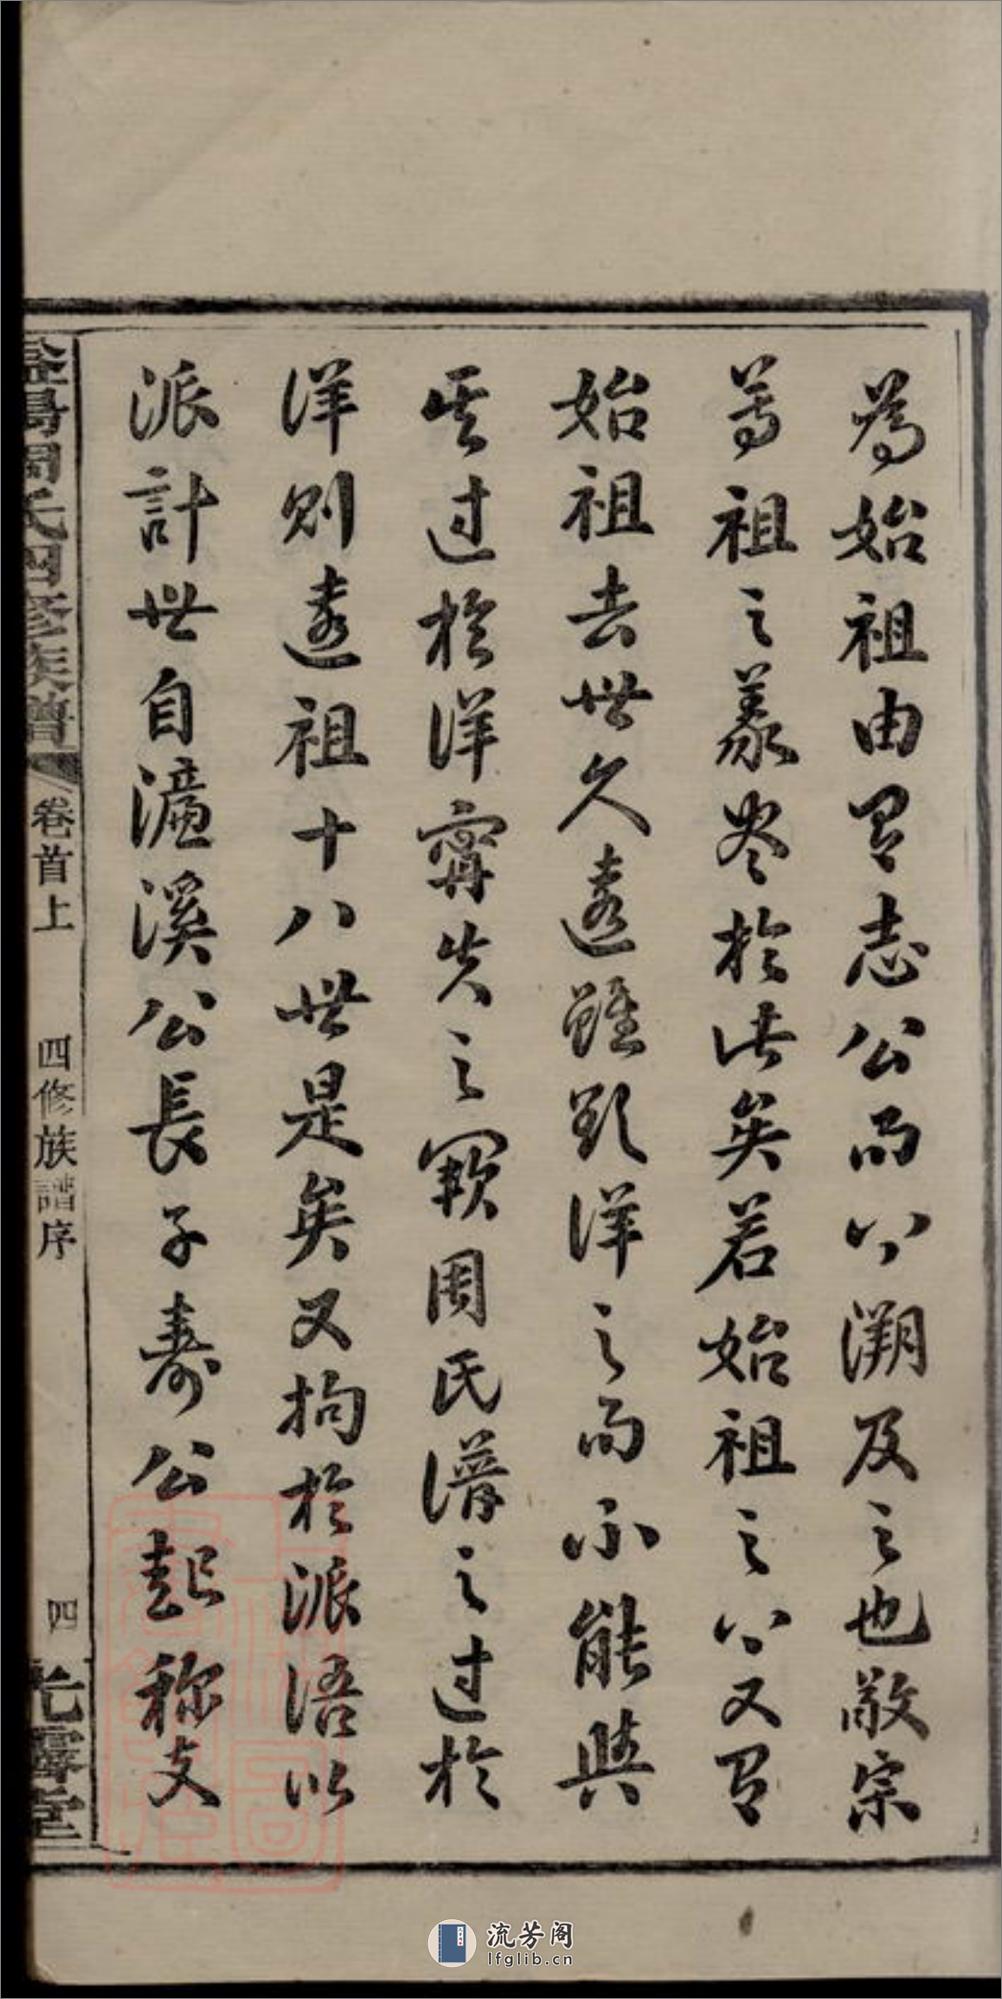 為始祖由有志公而上溯及之也敬宗
尊祖之義盡於此矣若始祖之上又有
始祖去世久遠雖欲詳之而不能與
其過於詳寧失之闕周氏譜之過於
詳則遠祖十八世是矣又拘於派語以
派計世自濂溪公長子壽公起称支
益陽周氏四修族譜
卷首上
四修族譜序
四
光霽堂
流芳阁
lfglib.cn